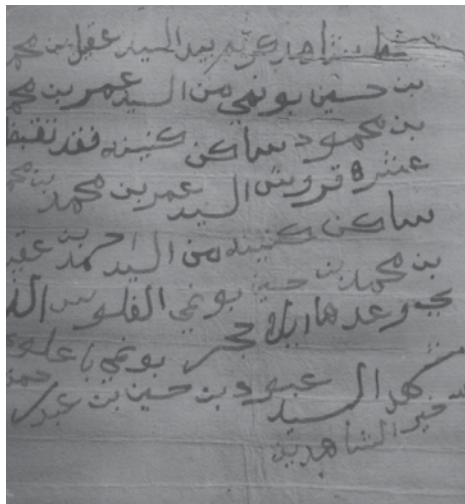 خط شاهد كريم بيد السيد عقيل بن محمد
بن حسين بونمي من السيد عمر بن محمد
بن محمود ساكن كنينه فقد تقبض
عشرة قروش السيد عمر بن محمد بن
ساكن كنينه من السيد احمد بن عقيل
بن محمد بن حسين بونمي الفلوس الذ
وعدها حجر بونمي باعلوي
شهد السيد عبود بن حسين بن
خير الشاهدين